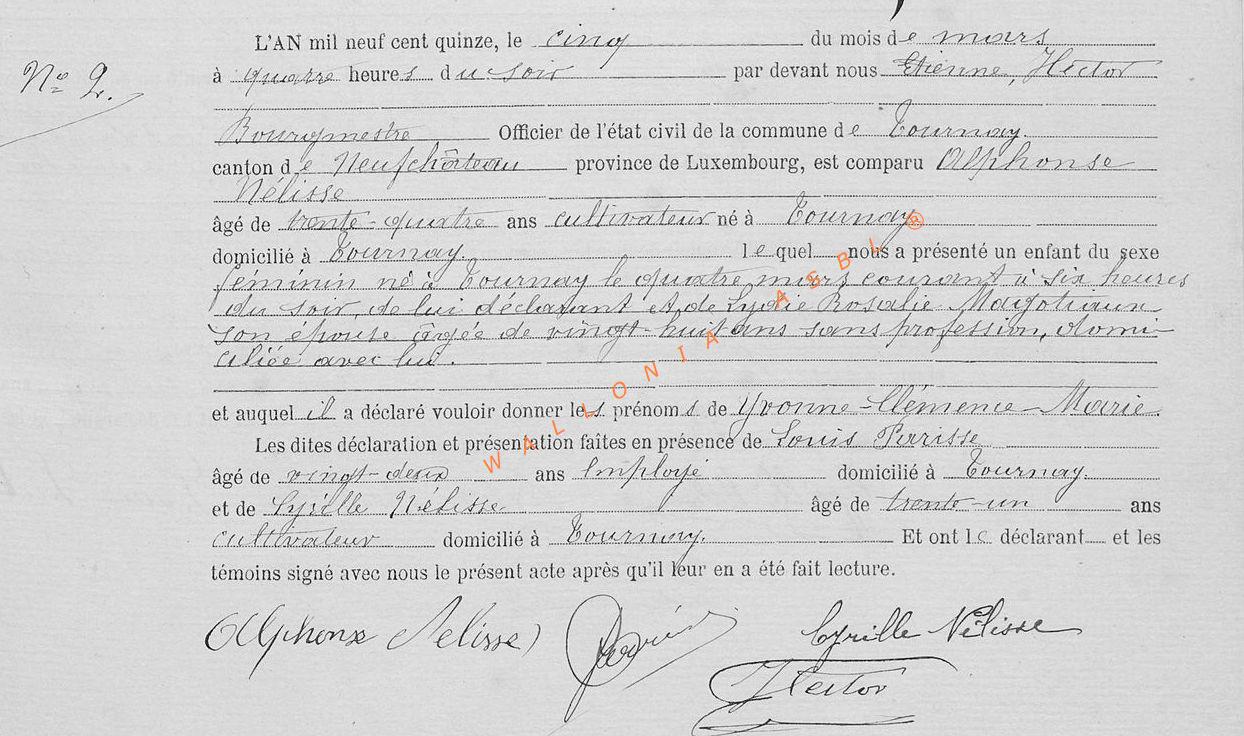 L'AN mil neuf cent quinze, le cinq du mois de mars
N° 2.
à quatre heures du soir par devant nous Etienne, Hector
Bourgmestre Officier de l'état civil de la commune de Tournay.
canton de Neufchâteau province de Luxembourg, est comparu Alphonse
Nélisse
âgé de trente-quatre ans cultivateur né à Tournay
domicilié à Tournay. lequel nous a présenté un enfant du sexe
féminin né à Tournay le quatre mars courant à six heures
du soir, de lui déclarant et de Lydie Rosalie Magotiaux
son épouse âgée de vingt-huit ans sans profession, domi-
ciliée avec lui.
et auquel il a déclaré vouloir donner les prénoms de Yvonne-Clémence-Marie
Les dites déclaration et présentation faîtes en présence de Louis
âgé de vingt-deux ans Employé domicilié à Tournay.
et de Cyrille Nélisse âgé de trente-un ans
cultivateur domicilié à Tournay. Et ont le déclarant et les
témoins signé avec nous le présent acte après qu'il leur en a été fait lecture.
Alphonse Nelisse Cyrille Nélisse
Hector
WALLONIA ASBL ®